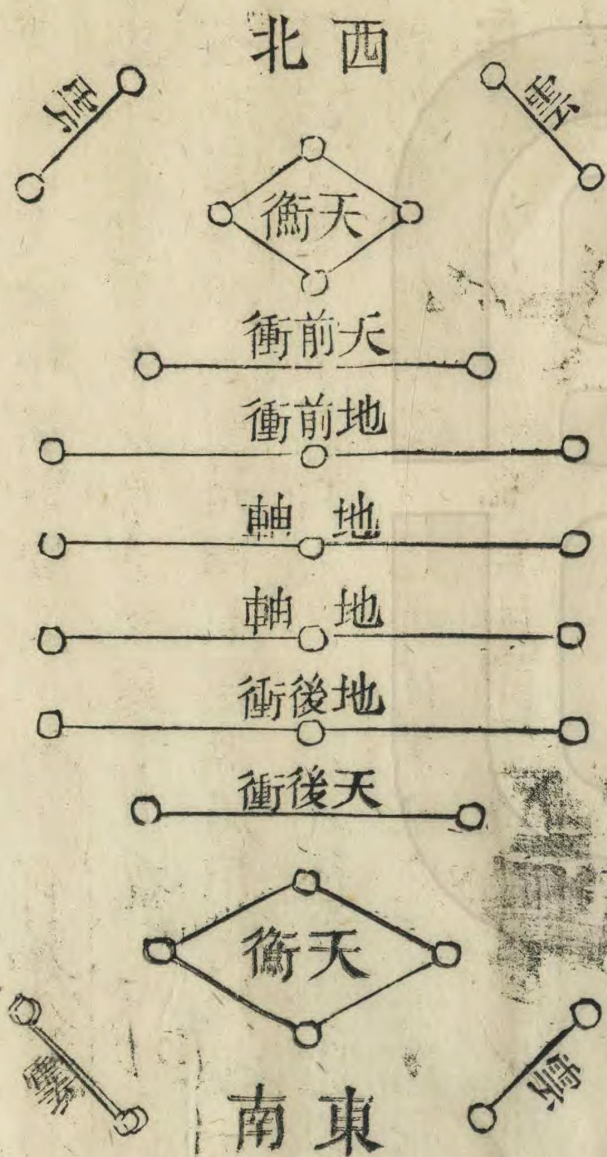 西北
雲
天衡
天前衝
地前衝
地軸
地軸
地後衝
天後衝
天衡
東南